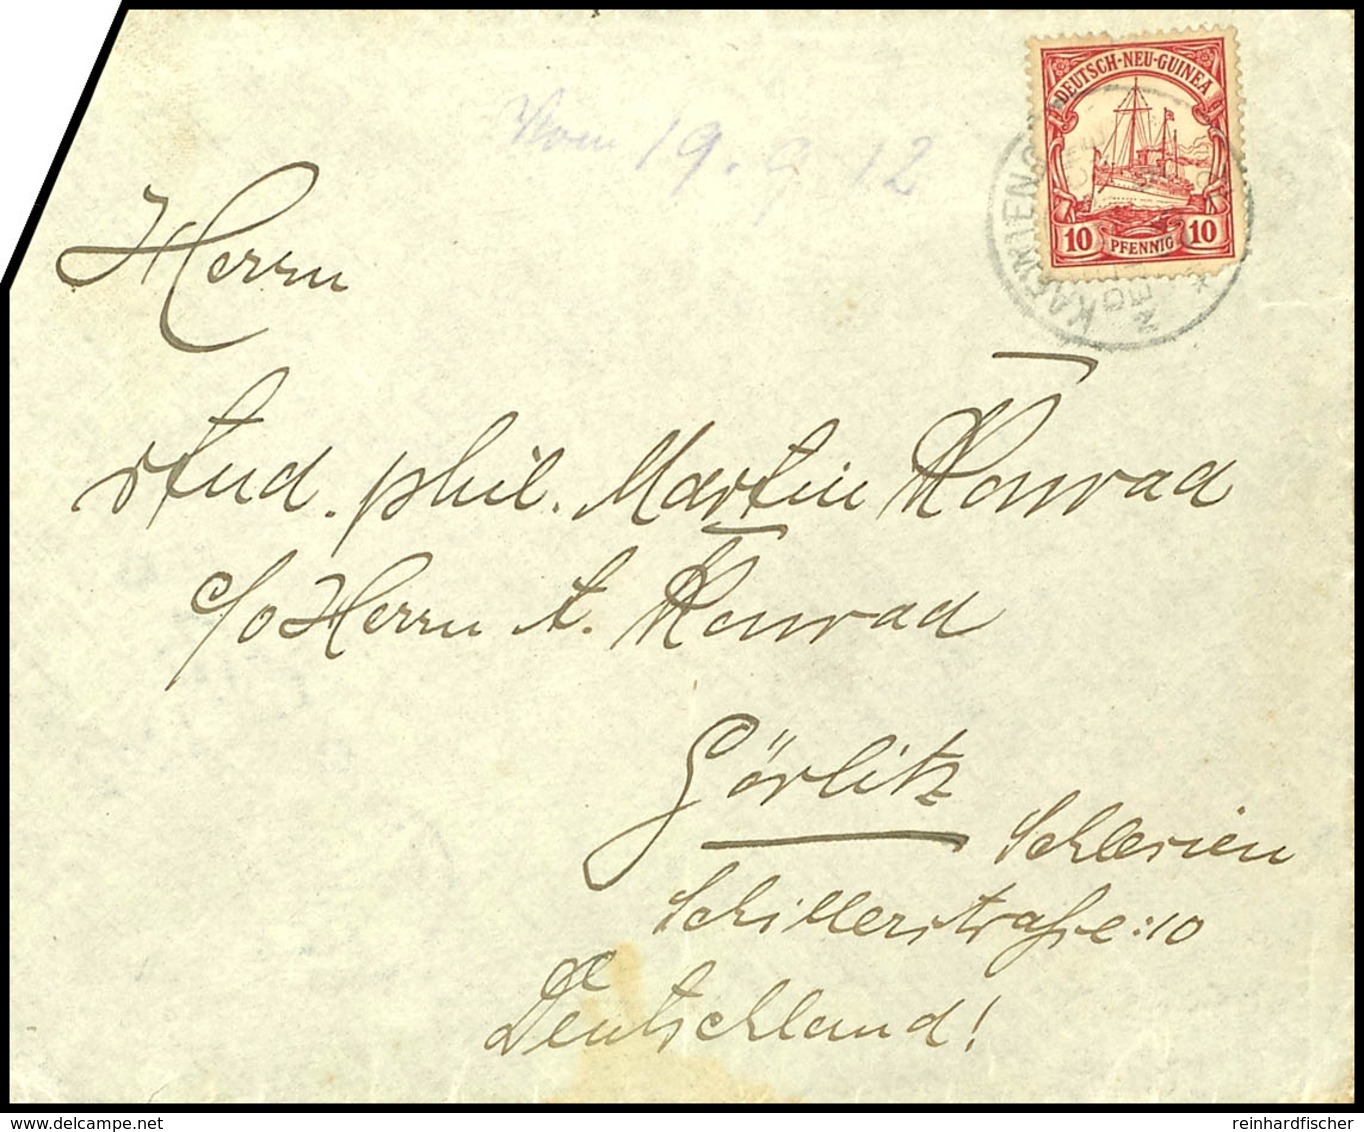 DEUTSCH-NEU-GUINEA
10 PFENNIG 10
Vom 19. 9. 12
Herrn
stud. phil. Martin Konrad
c/o Herrn A. Konrad
Görlitz
Schlesien
Schillerstraße: 10
Deutschland!
delcampe.net
reinhardfischer